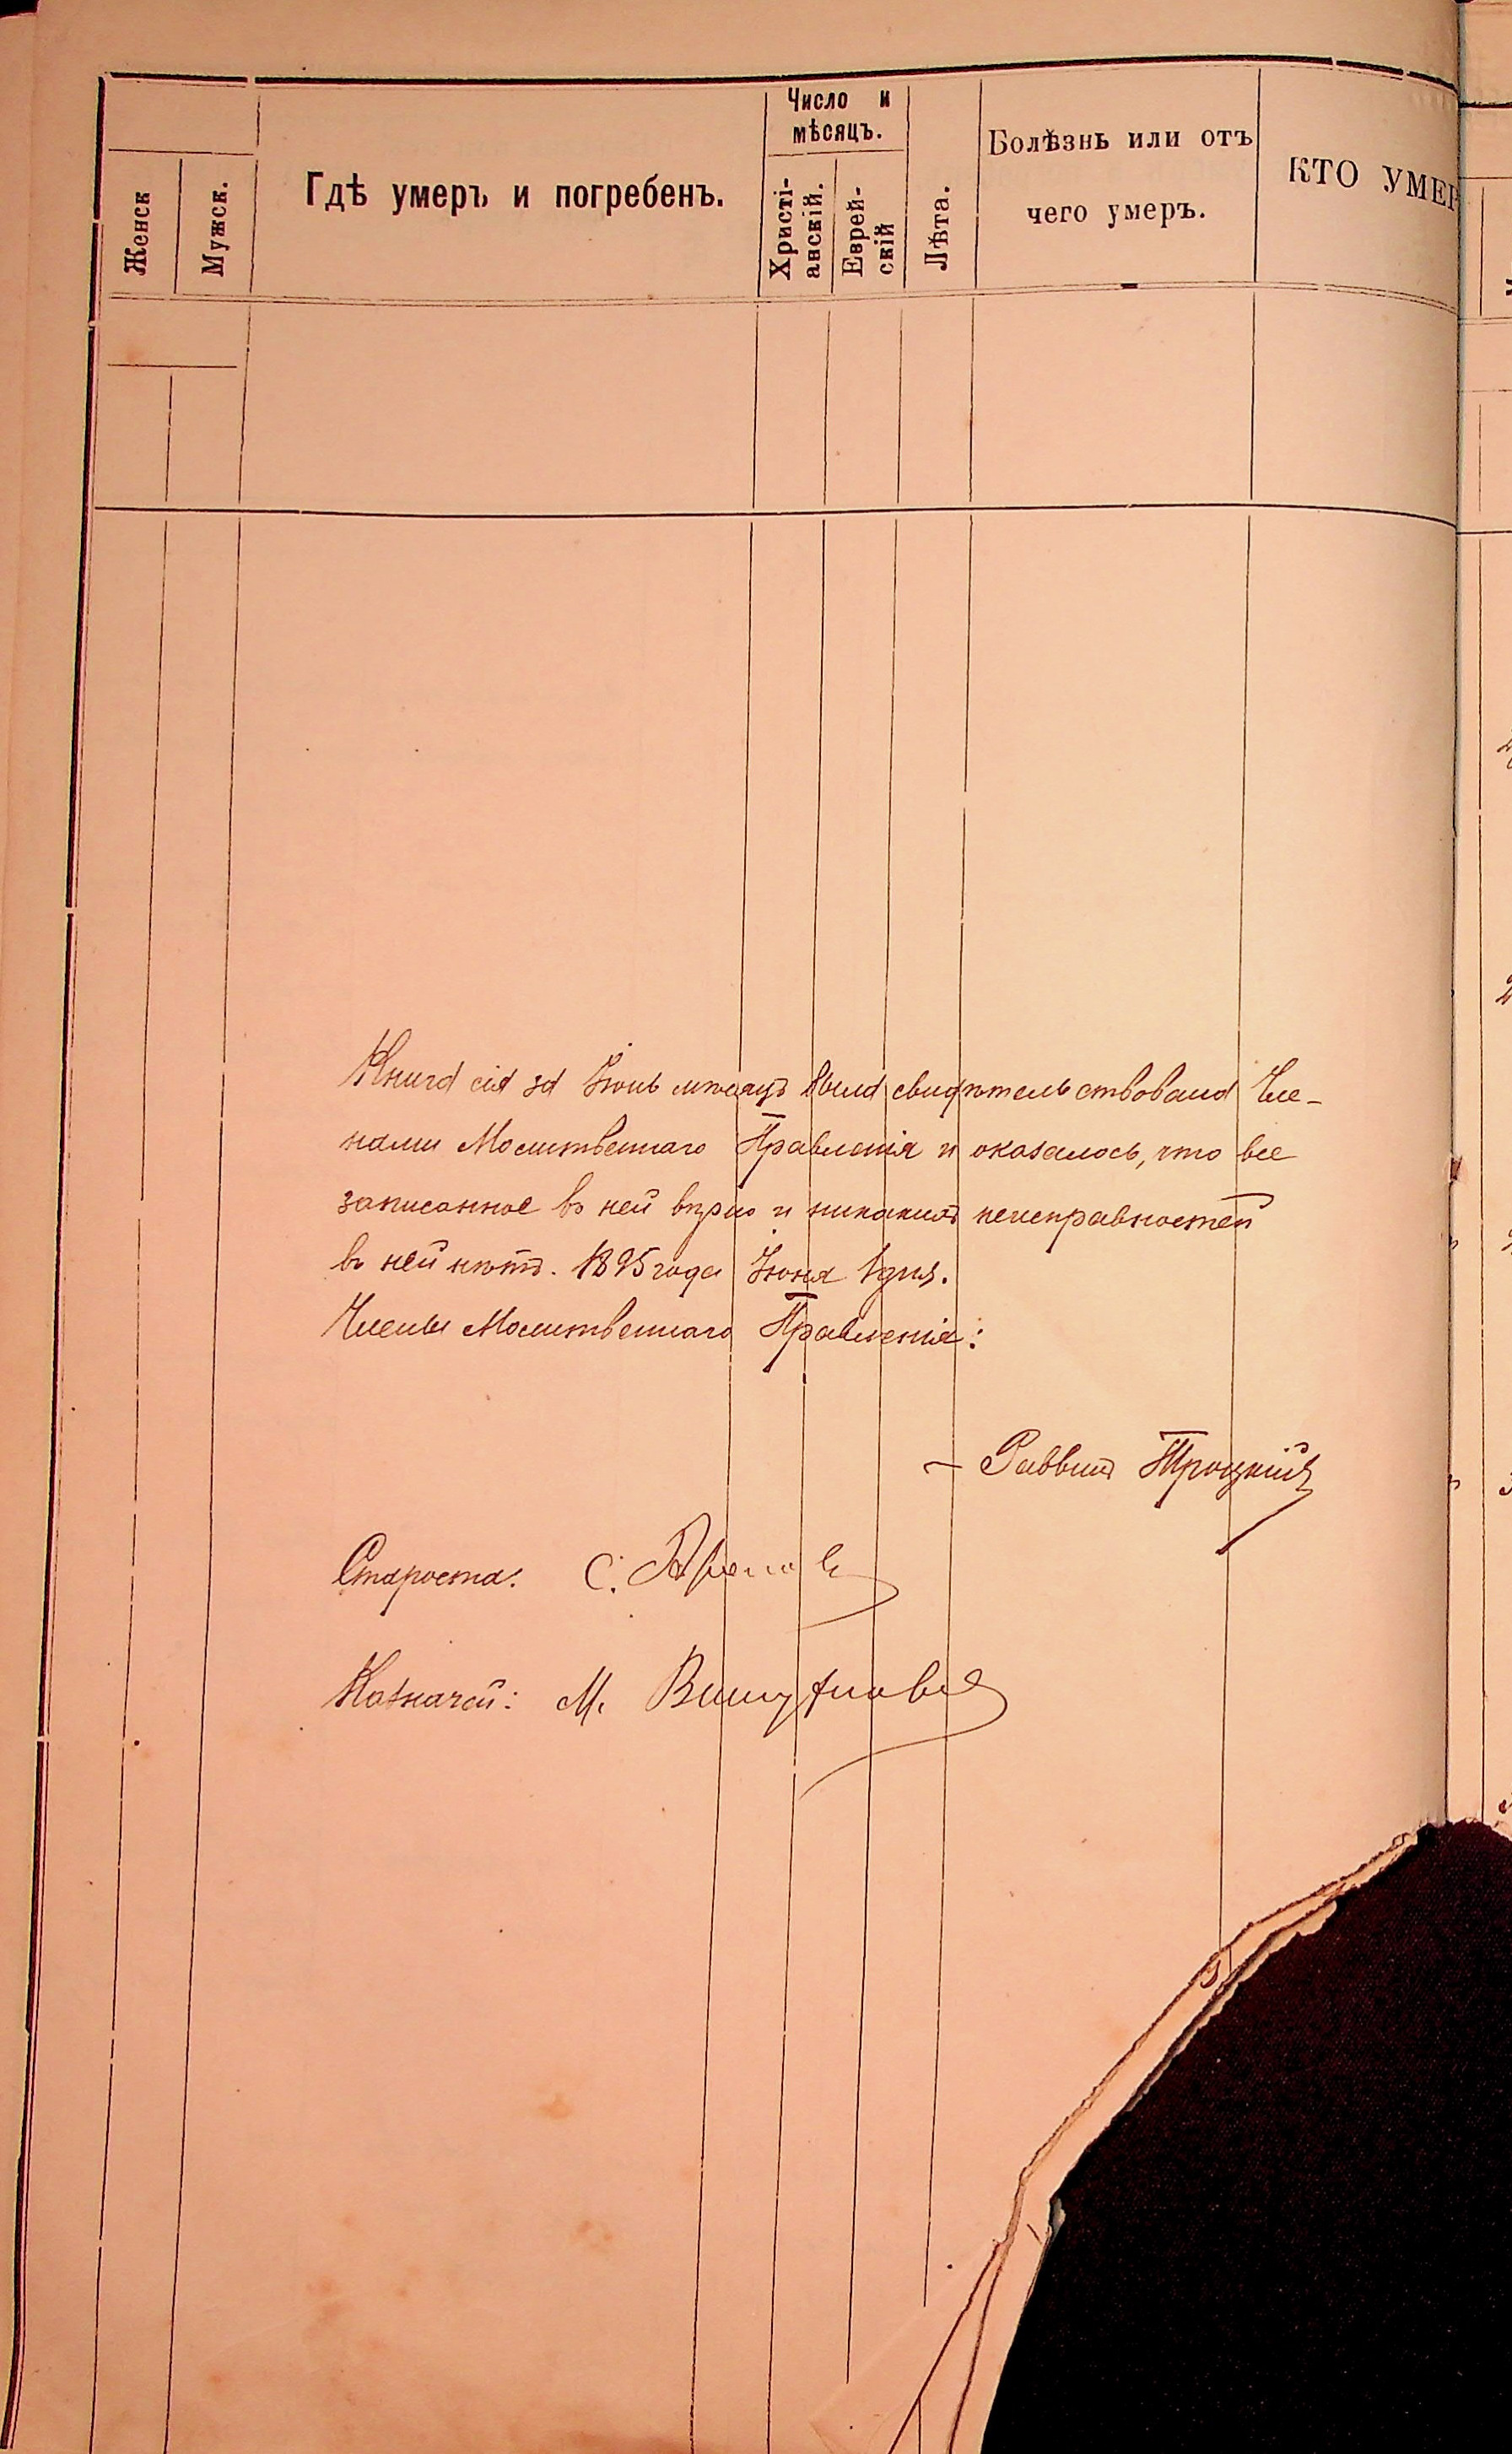 Женск
Мужск.
Гдѣ умеръ и погребенъ.
Число и
мѣсяцъ.
Христі-
анскій.
Еврей-
скій
Лѣта.
Болѣзнь или отъ
чего умеръ.
КТО УМЕР
Книга сія за Іюнь мѣсяцъ была свидѣтельствована Чле-
нами Молитвеннаго Правленія и оказалось, что все
записанное въ ней вѣрно и никакихъ неисправностей
въ ней нѣтъ. 1895 года Іюня дня.
Члены Молитвеннаго Правленія:
Раввинъ Троцкій
Староста: С.
Казначей: М.